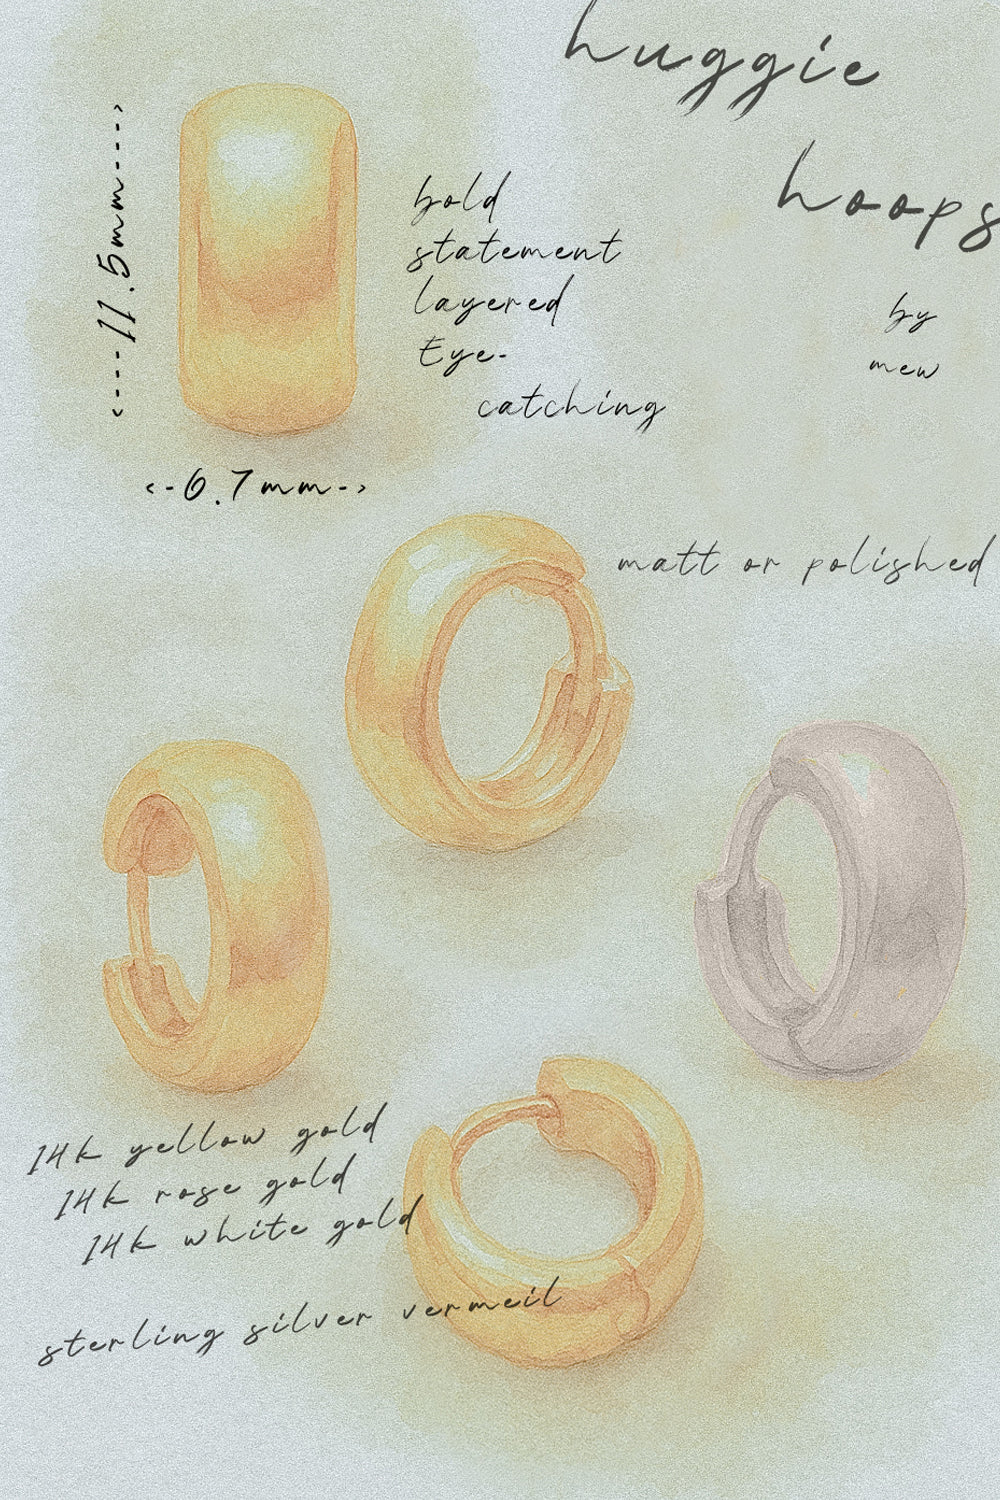 huggie
hoops
by
mew
<----11.5mm---->
bold
statement
layered
Eye-
catching
<-6.7mm->
matt or polished
14k yellow gold
14k rose gold
14k white gold
sterling silver vermeil